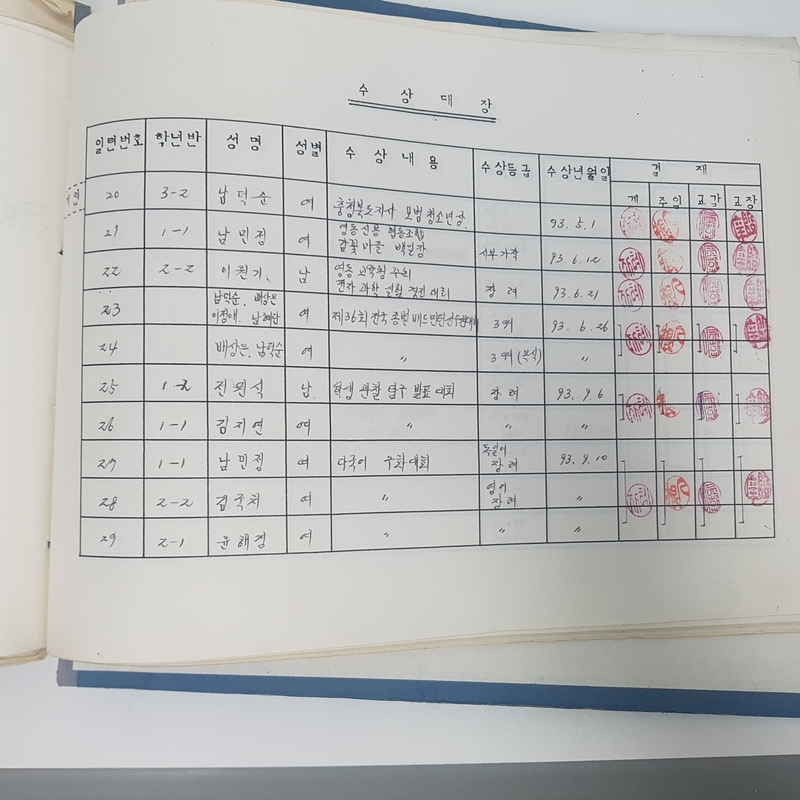 수 상 대 장
일련번호 학년반 성명 성별 수상내용 수상등급 수상년월일 결재
계 주임 교감 교장
20 3-2 남덕순 여 충청북도지사 모범청소년상 93.5.1
21 1-1 남민정 여 영동신용협동조합
감꽃마을 백일장 93.6.12
22 2-2 이권기 남 영동교육청
전자과학실험경진대회 장려 93.6.21
23 남덕순. 배상은
이정애. 여 제36회 전국 종별 배드민턴선수권대회 3위 93.6.26
24 배상은. 남덕순 여 〃 3위(복식) 〃
25 전원석 남 학생 관찰 탐구 발표대회 장려 93.9.6
26 1-1 김지연 여 〃 〃 〃
27 1-1 남민정 여 다국어 구화대회 독일어
장려 93.9.10
28 2-2 여 〃 영어
장려 〃
29 2-1 윤해경 여 〃 〃 〃